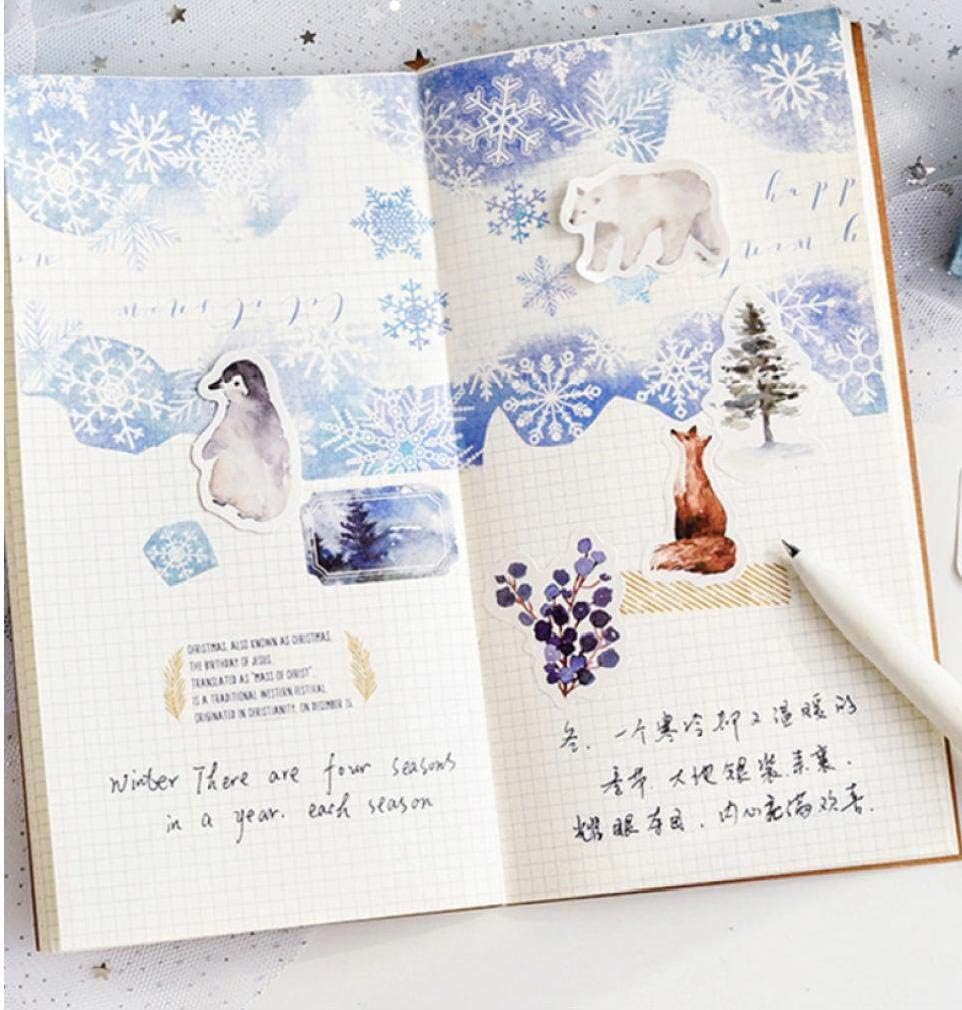 CHRISTMAS, ALSO KNOWN AS CHRISTMAS,
THE BIRTHDAY OF JESUS,
TRANSLATED AS "MASS OF CHRIST",
IS A TRADITIONAL WESTERN FESTIVAL
ORIGINATED IN CHRISTIANITY, ON DECEMBER 25.
Winter There are four seasons
in a year. each season
happ
冬，一个寒冷却又温暖的
季节，大地银装素裹，
耀眼夺目，内心充满欢喜.